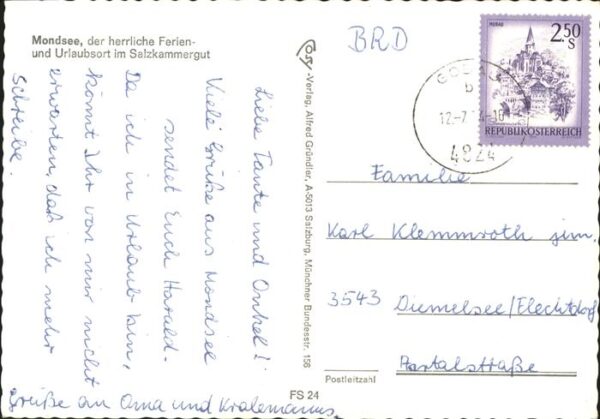 Mondsee, der herrliche Ferien-
und Urlaubsort im Salzkammergut
Liebe Tante und Onkel!
Viele Grüße aus Mondsee
sendet Euch Harald.
Da ich in Urlaub bin,
könnt Ihr von mir nicht
erwarten, daß ich mehr
schreibe.
Grüße an Oma und
-Verlag, Alfred Gründler, A-5013 Salzburg, Münchner Bundesstr. 156
FS 24
BRD
MURAU
2.50
S
REPUBLIK ÖSTERREICH
b
12.-7
4824
Familie
Karl Klemmroth jun.
3543 Diemelsee/Flechtdorf
Portalstraße
Postleitzahl